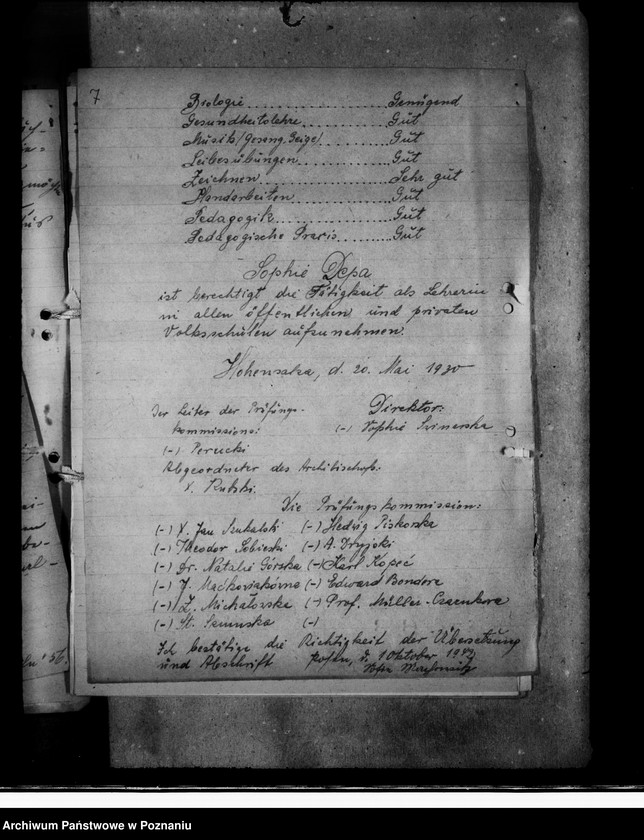 7
Biologie.......................Genügend
Gesundheitslehre.................Gut
Musik/Gesang, Geige/.............Gut
Leibesübungen....................Gut
Zeichnen.......................Sehr gut
Handarbeiten.....................Gut
Pedagogik........................Gut
Pedagogische Praxis..........Gut
Sophie Depa
ist berechtigt die Tätigkeit als Lehrerin
in allen öffentlichen und privaten
Volksschulen aufzunehmen.
Hohensalza, d. 20. Mai 1930
Der Leiter der Prüfungs-
kommission:
(-) Perucki
Direktor:
(-) Sophie
Abgeordneter des Archibischofs:
X. Kutzki.
Die Prüfungskommission:
(-) X. Jan Szukalski (-) Hedwig Piskorska
(-) Theodor Sobieski (-) A. Dryjski
(-) Dr. Natalie Górska (-) Karl Kopeć
(-) J. Maćkowiakówna (-) Edward Bondore
(-) Z. Michałowska (-) Prof. Müller-Czarnkore
(-) St. (-)
Ich bestätige die Richtigkeit der Übersetzung
und Abschrift Posen, d. 1 Oktober
Archiwum Państwowe w Poznaniu